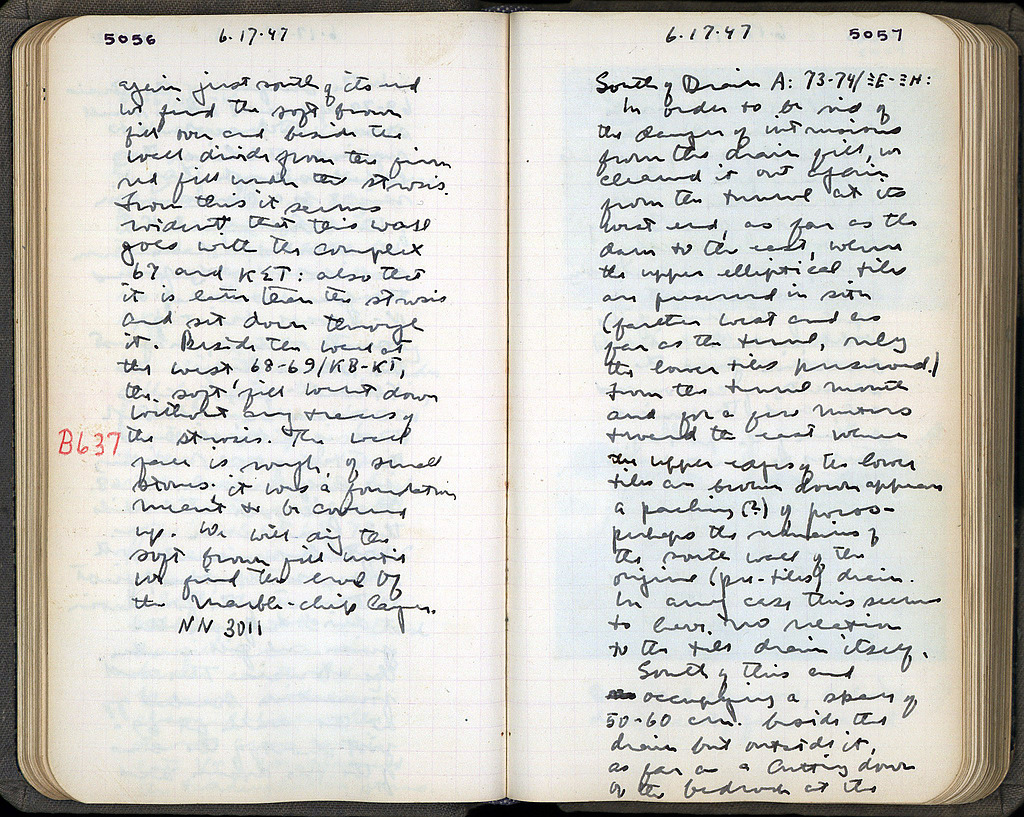 5056 6·17·47
again just south of its end
we find the soft brown
fill over and beside the
wall divide from the firm
red fill under the strosis.
From this it seems
evident that this wall
goes with the complex
67 and ΚΣΤ: also that
it is later than the strosis
and set down through
it. Beside the wall at
the west 68-69/ΚΒ-ΚΓ,
the soft fill went down
without any traces of
B637
the strosis. The wall
face is rough, of small
stones; it was a foundation
meant to be covered
up. We will dig the
soft brown fill until
we find the end of
the marble-chip layer.
NN 3011
6·17·47 5057
South of Drain A: 73-74/ΞΕ-ΞΗ:
In order to be rid of
the danger of intrusions
from the drain fill, we
cleaned it out again
from the tunnel at its
west end, as far as the
dam to the east, where
the upper elliptical tiles
are preserved in situ
(farther west and as
far as the tunnel, only
the lower tiles preserved.)
From the tunnel mouth
and for a few meters
toward the east where
the upper edges of the lower
tiles are broken down appears
a packing (?) of poros-
perhaps the remains of
the south wall of the
original (pre-tiles) drain.
In any case this seems
to have no relation
to the tile drain itself.
South of this and
occupying a space of
50-60 cm. beside the
drain but outside it,
as far as a cutting down
of the bedrock at the